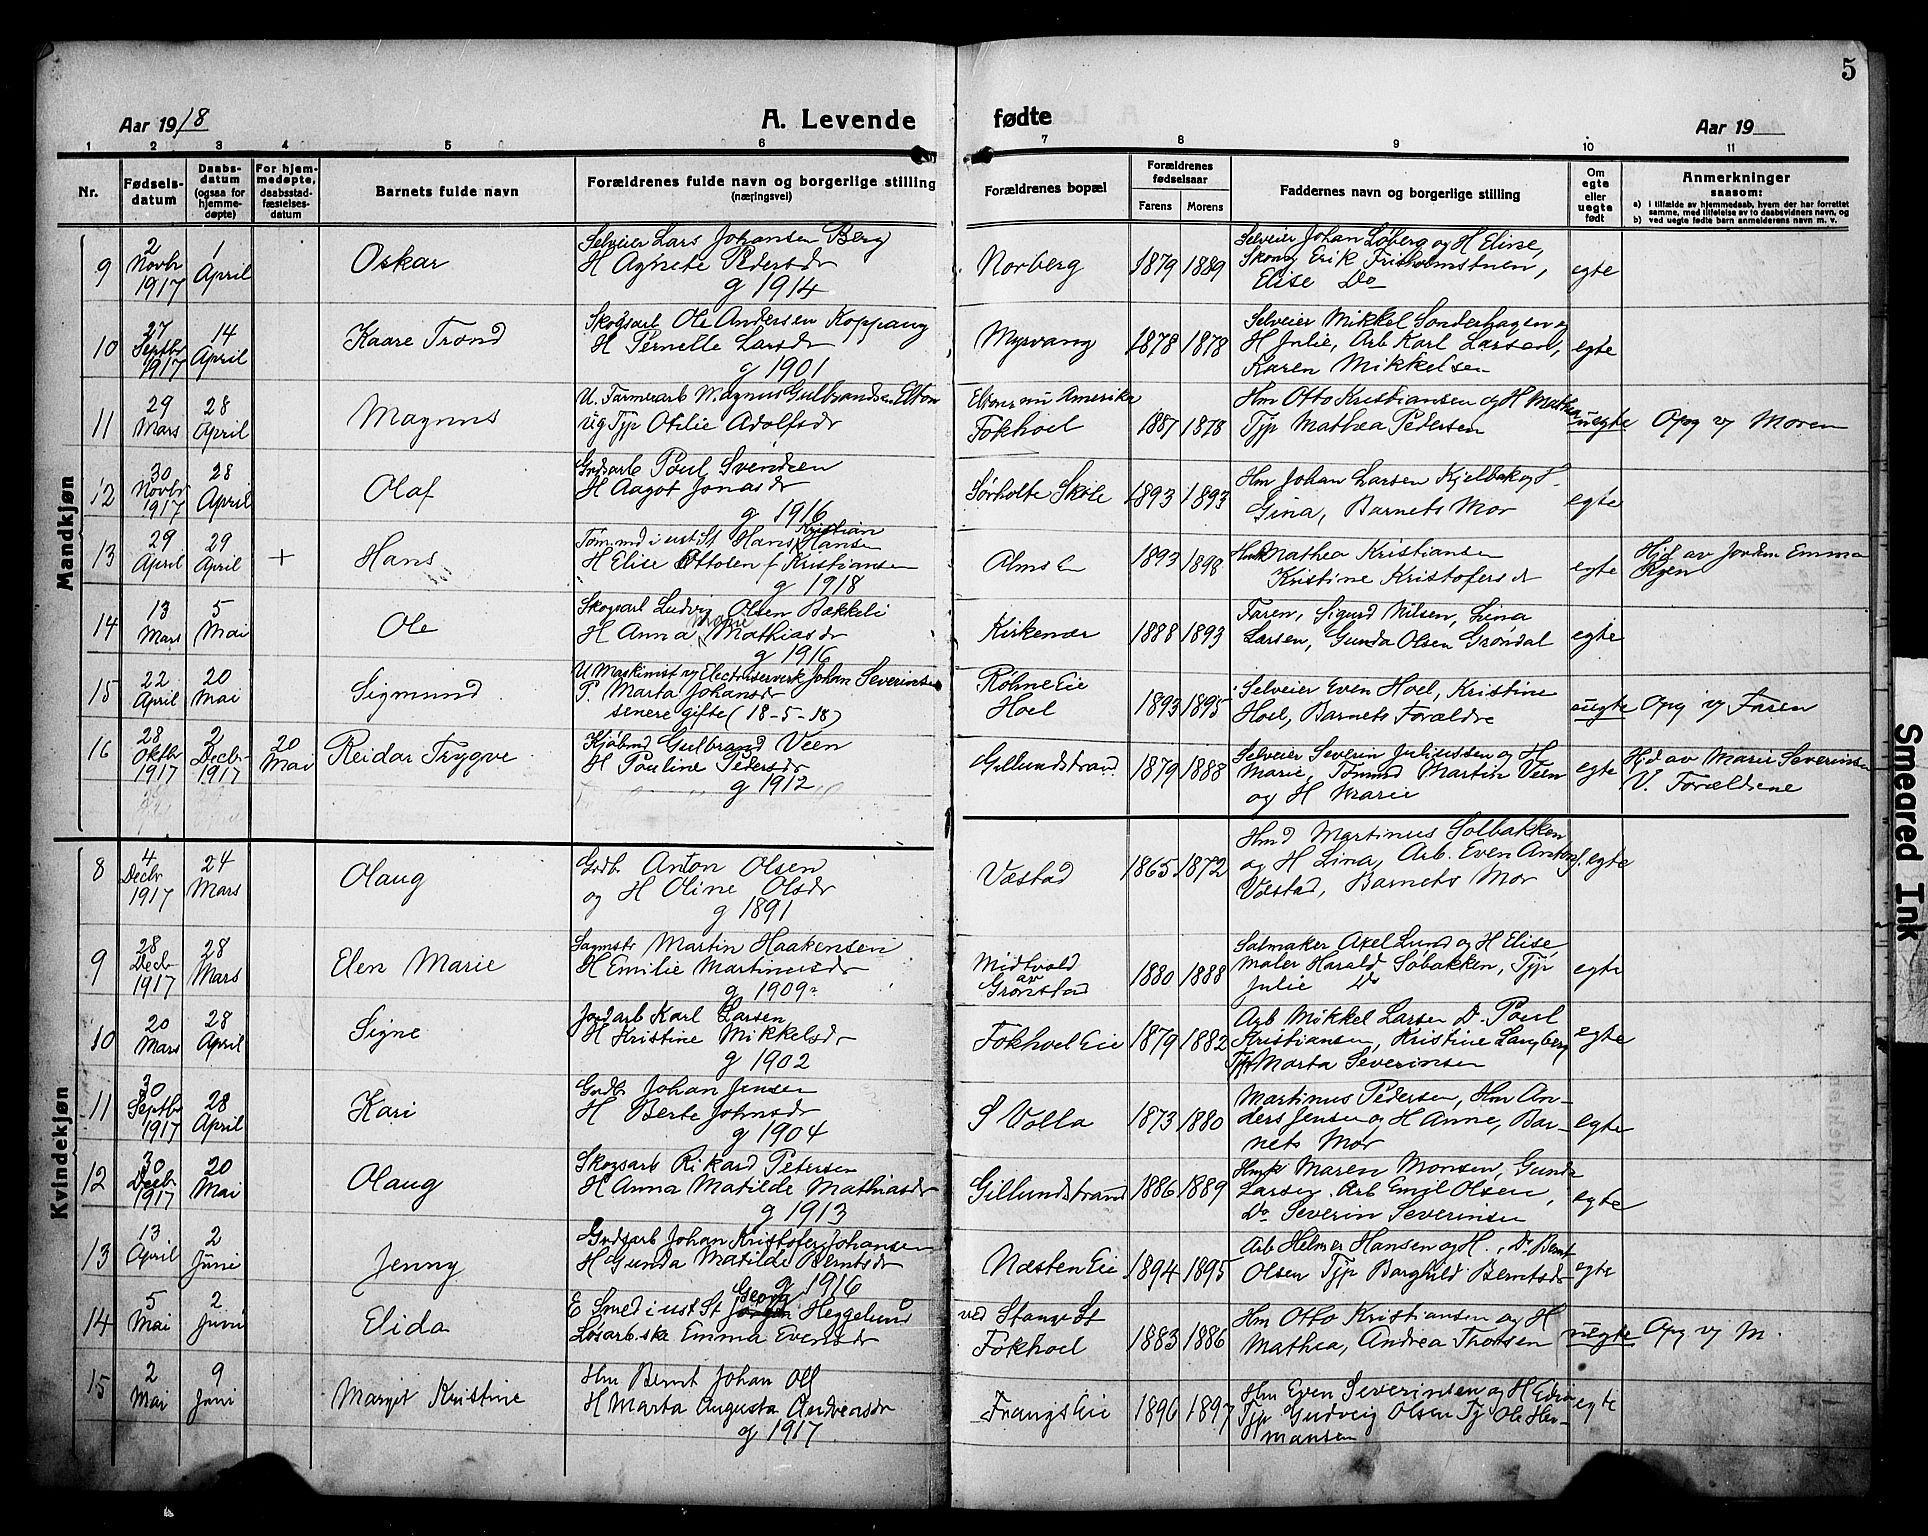 5
Aar 1918
A. Levende
fødte
Aar 19
1 2 3 4 5 6 7 8 9 10 11
Nr.
Fødsels-
datum
Daabs-
datum
(ogsaa for
hjemme-
døpte)
For hjem-
medøpte,
daabsstad-
fæstelses-
datum
Barnets fulde navn
Forældrenes fulde navn og borgerlige stilling
(næringsvei)
Forældrenes bopæl
Forældrenes
fødselsaar
Farens Morens
Faddernes navn og borgerlige stilling
Om
egte
eller
uegte
født
Anmerkninger
saasom:
a) i tilfælde av hjemmedaab, hvem der har forrettet
samme, med tilføielse av to daabsvidners navn, og
b) ved uegte fødte barn anmelderens navn m. v.
Mandkjøn
9 2 Novbr 1917 1 April Oskar
Selveier Lars Johansen Berg
H Agnete Pedersdr
g 1914
Norberg 1879 1889
Selveier Johan Løberg og H Eline,
Skomg Erik Frisholmstuen,
Elise Do
egte
10 27 Septbr 1917 14 April Kaare Trond
Skogsarb Ole Andersen Koppang
H Pernelle Larsdr
g 1901
Myrvang 1878 1878
Selveier Mikkel Sonderhagen og
H Julie, Arb Karl Larsen,
Karen Mikkelsen
egte
11 29 Mars 28 April Magnus
U. Farmerarb Magnus Gulbrandsen Elton
Ug Tjp Otilie Adolfsdr
Eltoner nu Amerika
Fokhoel 1887 1878
Hm Otto Kristiansen og H Mathea
Tjp Mathea Pedersen
uegte Opg v Moren
12 30 Novbr 1917 28 April Olaf
Grdsarb Poul Svendsen
H Aagot Jonasdr
g 1916
Sørholte Skole 1893 1893
Hm Johan Larsen Kjelbak og H
Gina, Barnets Mor
egte
13 29 April 29 April + Hans
Tøm.md i ustilt Hans Kristian Hansen
H Elise Ottolen f Kristiansen
g 1918
Alms 1893 1898
Mathea Kristiansen
Kristine Kristofersdr
egte
Hjd av Jordm Emma
Ryen
14 13 Mars 5 Mai Ole
Skogsarb Ludvig Olsen Bækkeli
H Anna Marie Mathiasdr
g 1916
Kirkenær 1888 1893
Faren, Sigurd Nilsen, Lina
Larsen, Gunda Olsen Grøndal
egte
15 22 April 20 Mai Sigmund
U Maskinist v Electricerverk Johan Severinsen
P. Marta Johansdr
senere gifte (18-5-18)
Røhne Eie
Hoel 1893 1895
Selveier Even Hoel, Kristine
Hoel, Barnets Forældre
uegte Opg v Faren
16 28 Oktbr 1917 2 Decbr 1917 20 Mai Reidar Trygve
Kjøbmd Gulbrand Veen
H Pouline Pedersdr
g 1912
Gillundstrand 1879 1888
Selveier Severin Juliussen og H
Marie, Tømmd Martin Veen
og H Marie
egte
Hjd av Marie Severinsen
V. Forældrene
Kvindekjøn
8 4 Decbr 1917 24 Mars Olaug
Grdbr Anton Olsen
og H Oline Olsdr
g 1891
Væstad 1865 1872
Hmd Martinus Solbakken
og H Lina, Arb. Even Antons.
Væstad, Barnets Mor
egte
9 28 Decbr 1917 28 Mars Elen Marie
Sagmstr Martin Haakensen
H Emilie Martinusdr
g 1909
Midtvold
av
Grønstad 1880 1888
Salmaker Axel Lund og H Elise
Maler Harald Søbakken, Tjp
Julie Do
egte
10 20 Mars 28 April Signe
Jordarb Karl Larsen
H Kristine Mikkelsdr
g 1902
Fokhoel Eie 1879 1882
Arb Mikkel Larsen Do Poul
Kristiansen, Kristine Langberg
Tjp Marta Severinsen
egte
11 30 Septbr 1917 28 April Kari
Grdbr Johan Jensen
H Berte Johnsdr
g 1904
S Volla 1873 1880
Martinus Pedersen, Hm An-
ders Jensen og H Anne, Bar-
nets Mor
egte
12 30 Decbr 1917 20 Mai Olaug
Skogsarb Rikard Petersen
H Anna Matilde Mathiasdr
g 1913
Gillundstrand 1886 1889
Maren Monsen, Gunda
Larsen, Arb Emil Olsen,
Do Severin Severinsen
egte
13 13 April 2 Juni Jenny
Grdsarb Johan Kristofer Johansen
H Gunda Matilde Berntsdr
g 1916
Næsten Eie 1894 1895
Arb Helmer Hansen og H., Do Bernt
Olsen Tjp Borghild Berntsdr
egte
14 5 Mai 2 Juni Elida
E Smed i ust St Georg Heggelund
Løsarb.ske Emma Evensdr
ved Stange St
Fokhoel 1883 1886
Hm Otto Kristiansen og H
Mathea, Andrea Thorsen
uegte Opg v M.
15 2 Mai 9 Juni Margit Kristine
Hm Bernt Johan Ols
H Marta Augusta Andreasdr
g 1917
Frangs Eie 1896 1897
Hm Even Severinsen og H Edin
Tjp Gudveig Olsen Tj Ole Her-
mansen
egte
Smeared Ink